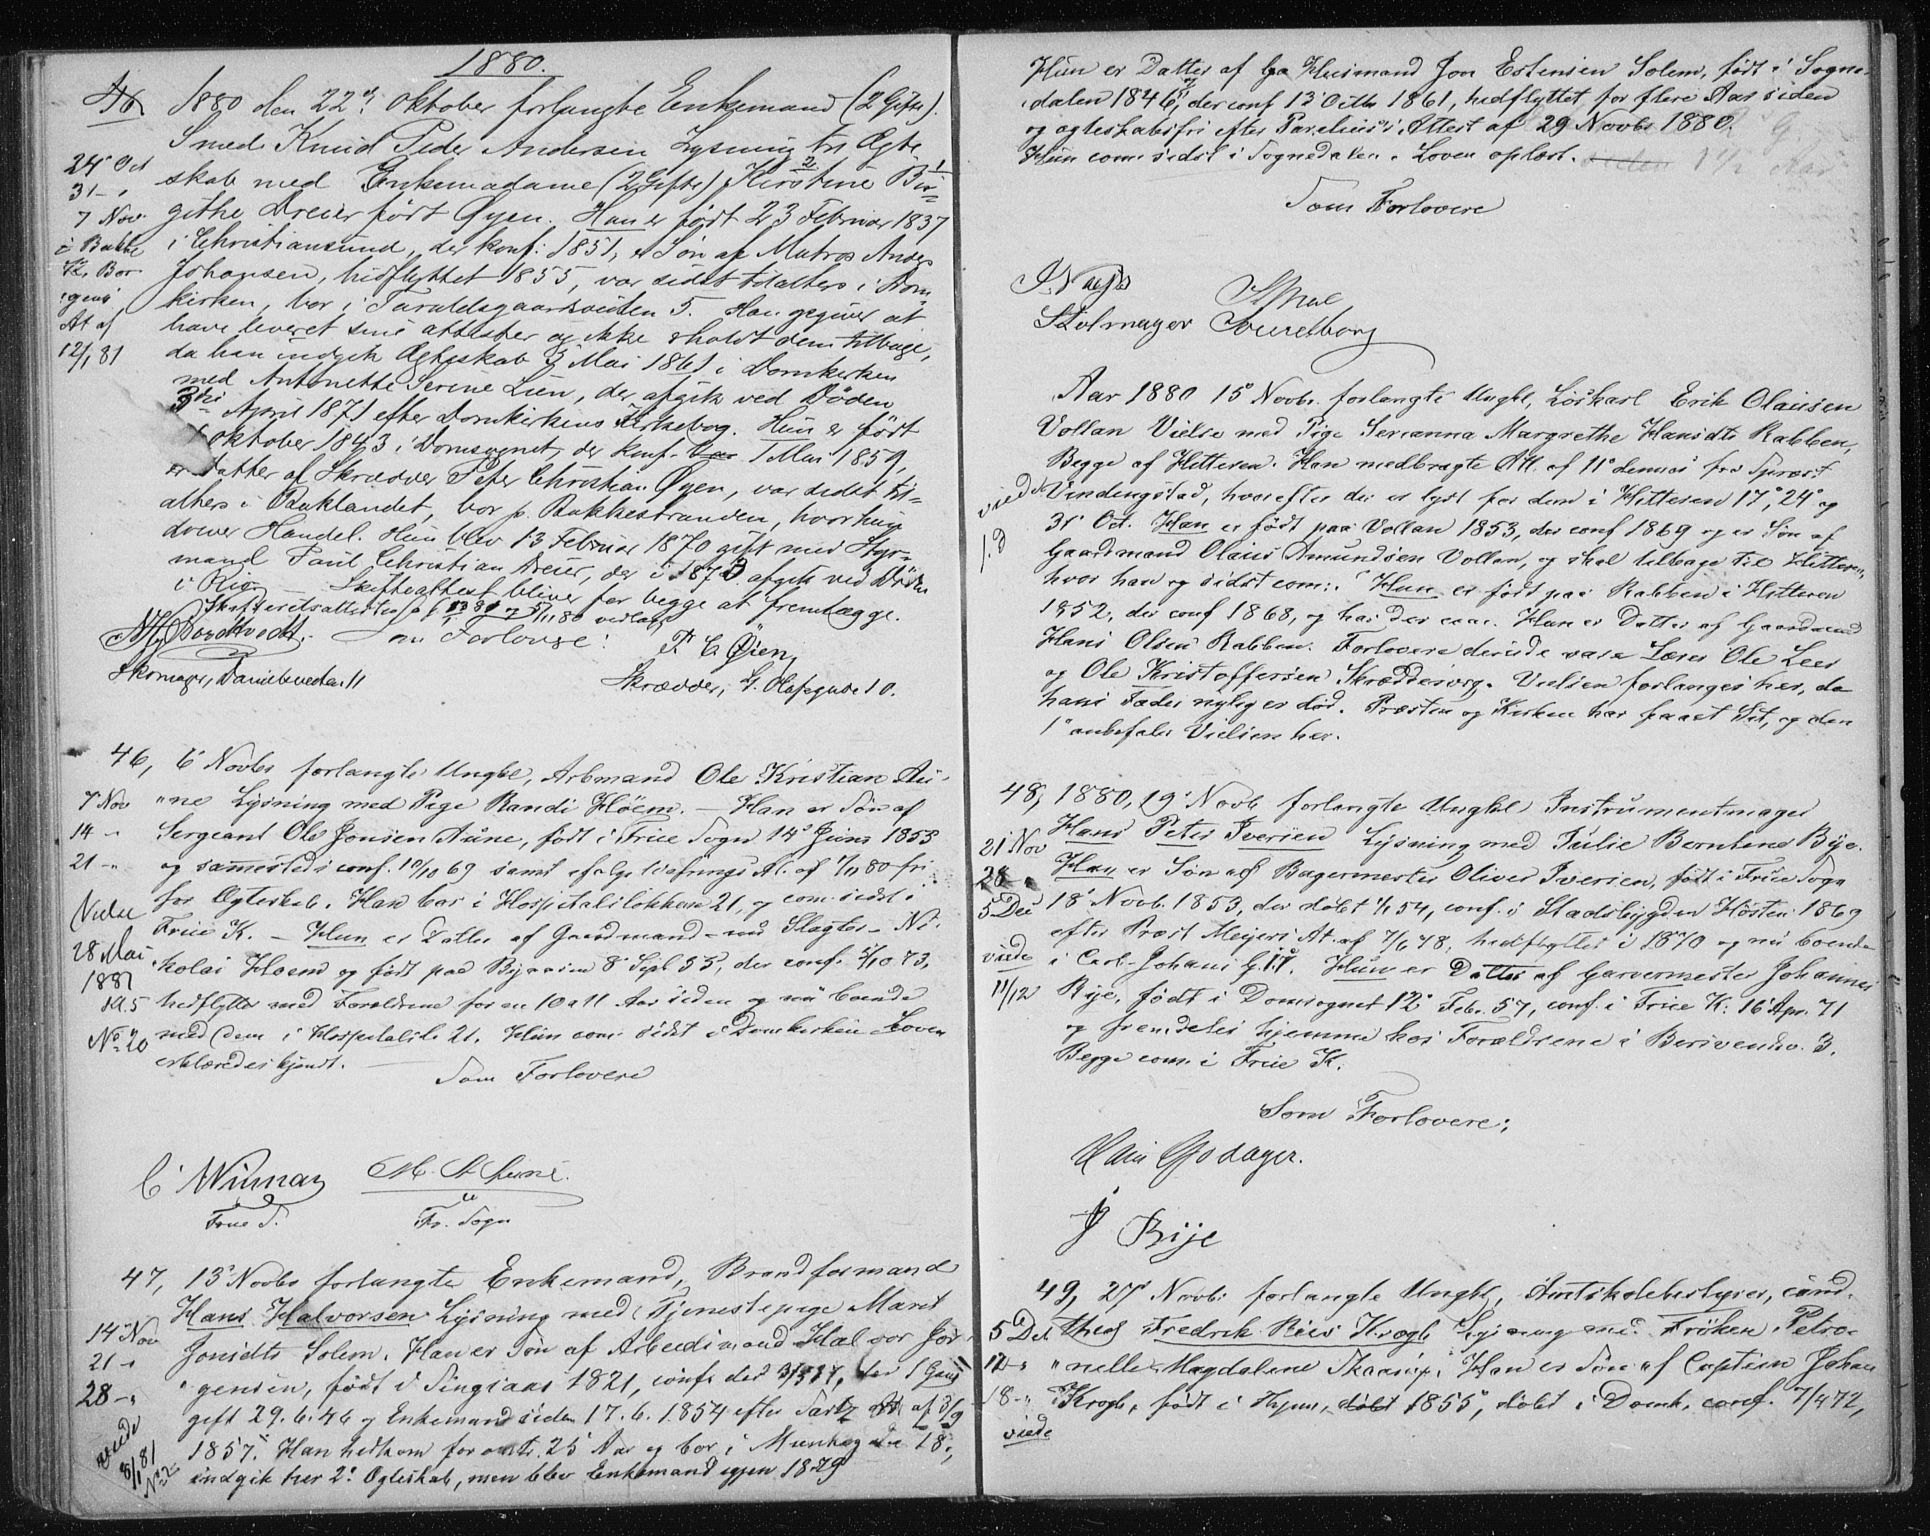 1880.
1880 den 22d Oktober forlangte Enkemand (2 Gifte)
Smed Knud Peder Andersen Lysning til Ægte
24 Oct
31 - "
7 Nov.
i Bakke
K. Bor
At af
12/1 81
skab med Enkemadame (2 Gifte) Kirstine Bir=
githe Dreier født Øyen. Han er født 23 Februar 1837
i Christiansund, der konf: 1851, er Søn af Matros Anders
Johansen, hidflyttet 1855, var sidst tilalters i Dom=
kirken, bor i Taraldsgaardsveiten 5. Han opgiver at
have leveret sine attester og ikke erholdt dem tilbage,
da han indgik Ægteskab 3 Mai 1861 i Domkirken
med Antonette Serine Lien, der afgik ved Døden
April 1871 efter Domkirkens Kirkebog. Hun er født
Oktober 1843 i Domsognet, der konf. 1 Mai 1859,
er Datter af Skrædder Peter Christian Øyen, var sidst til=
alters i Baklandet, bor p. Bakkestranden, hvor hun
driver Handel. Hun blev 13 Februar 1870 gift med Styr=
mand Paul Christian Dreier, der i 1873 afgik ved Døden
i Rio. Skifteattest bliver for begge at fremlægge.
Skifteretsattester
Som Forlovere:
P. C. Øien,
Skomager, Danielsveiten 11
Skrædder, St. Olafsgade 10.
46, 6 Novbr forlangte Ungkl, Arbmand Ole Kristian Au-
7 Nov
14 -
21 -
Vielse
28 Mai
1881
No 20
"ne Lysning med Pige Randi Høem. - Han er Søn af
Sergeant Ole Jonsen Aune, født i Frue Sogn 14 Juni 1853
og sammesteds conf. 10/10 69 samt ifølge Udskrivnings At. af 1/11 80 fri
for Ægteskab. Han bor i Hospitalsløkken 21, og com. sidst i
Frue K. - Hun er Datter af Gaardmand - nu Slagter - Ni-
kolai Høem og født paa Byaasen 8 Sept 55, der conf. 5/10 73,
hidflyttet med Forældrene for en 10 a 11 Aar siden og nu boende
med dem i Hospitalsl. 21. Hun com. sidst i Domkirken. Loven
erklæredes kjendt.
Som Forlovere
Frue S.
Fr. Sogn
47, 13 Novbr forlangte Enkemand, Brandformand
14 Nov
21 - "
28 - "
viede
8/1 81
No 2
Hans Halvorsen Lysning med Tjenestepige Marit
Jonsdtr Solem. Han er Søn af Arbeidsmand Halvor Jør-
"gensen, født i Singsaas 1821, conf. der
gift 29. 6. 46 og Enkemand siden 17. 6. 1854 efter
1857. Han hidkom for omtr. 25 Aar og bor i Munkegaden 18,
indgik her 2 Ægteskab, men blev Enkemand igjen 1879
Hun er Datter af Husmand Jon Estensen Solem, født i Sogne-
dalen 1846, der conf 13 Octbr 1861, hidflyttet for flere Aar siden
og ægteskabsfri efter Parelius's Attest af 29 Novbr 1880.
Hun com. sidst i Sognedalen. Loven oplæst.
Som Forlovere
Skolmager
Aar 1880 15 Novbr. forlangte Ungkl, Løskarl Erik Olausen
viede
Vollan Vielse med Pige Serianna Margrethe Hansdtr Rabben,
Begge af Hitteren. Han medbragte Att. af 11 dennes fra Spræst
Vindingstad, hvorefter der er lyst for dem i Hitteren 17, 24 og
31 Oct. Han er født paa Vollan 1853, der conf 1869 og er Søn af
Gaardmand Olaus Amundsen Vollan, og skal tilbage til Hitteren,
hvor han og sidst com:. Hun er født paa Rabben i Hitteren
1852, der conf 1868, og har der com. Hun er Datter af Gaardmand
Hans Olsen Rabben. Forlovere derude vare Lærer Ole Lees
og Ole Kristoffersen Skræddervig. Vielsen forlanges her, da
hans Fader nylig er død. Præsten og Kirken har faaet Sit, og den
1 anbefaler Vielsen her.
48, 1880, 19 Novb. forlangte Ungkl Instrumentmager
21 Nov
28 "
5 Dec
viede
11/12
Hans Peter Iversen Lysning med Julie Berntine Bye.
Han er Søn af Bagermester Oliver Iversen, født i Frue Sogn
18 Novb. 1853, der døbt 1/1 54, conf. i Stadsbygden Høsten 1869
efter Præst Meyers At. af 7/1 78, hidflyttet i 1870 og nu boende
i Carl Johans G. 11. Hun er Datter af Garvermester Johannes
Bye, født i Domsognet 12 Feb. 57, conf. i Frue K. 16 Apr. 71
og fremdeles hjemme hos Forældrene i Berivendv. 3.
Begge com. i Frue K.
Som Forlovere:
Hans Godager.
J Bije
49, 27 Novb: forlangte Ungkl, Amtskolebestyrer, cand.
5 Dec
12 - "
18 - "
viede
theol Fredrik Riis Krogh Lysning med Frøken Petro-
"nelle Magdalene Skaarup. Han er Søn af Captein Johan
Krogh, født i Hjem, 1855, døbt i Domk, conf. 7/4 72,